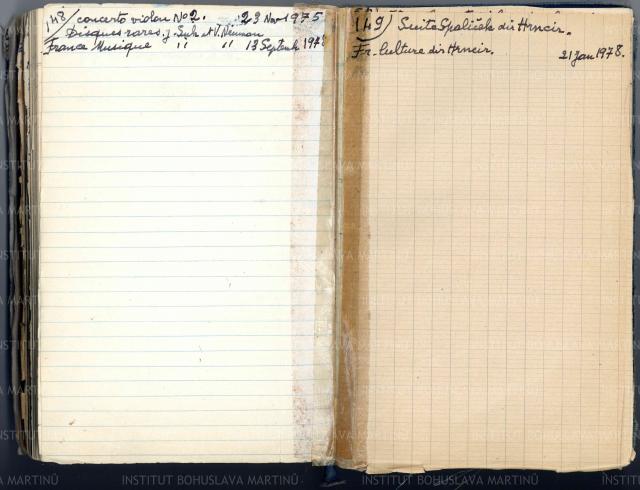 148/ concerto violon No 2. 23 Nov 1975
Disques rares. J. Suk et V. Neuman
France Musique " " 13 Septemb 1978
149) Suita Spalíček dir Hrncir.
Fr. Culture dir Hrncir. 21 Jan 1978.
INSTITUT BOHUSLAVA MARTINŮ